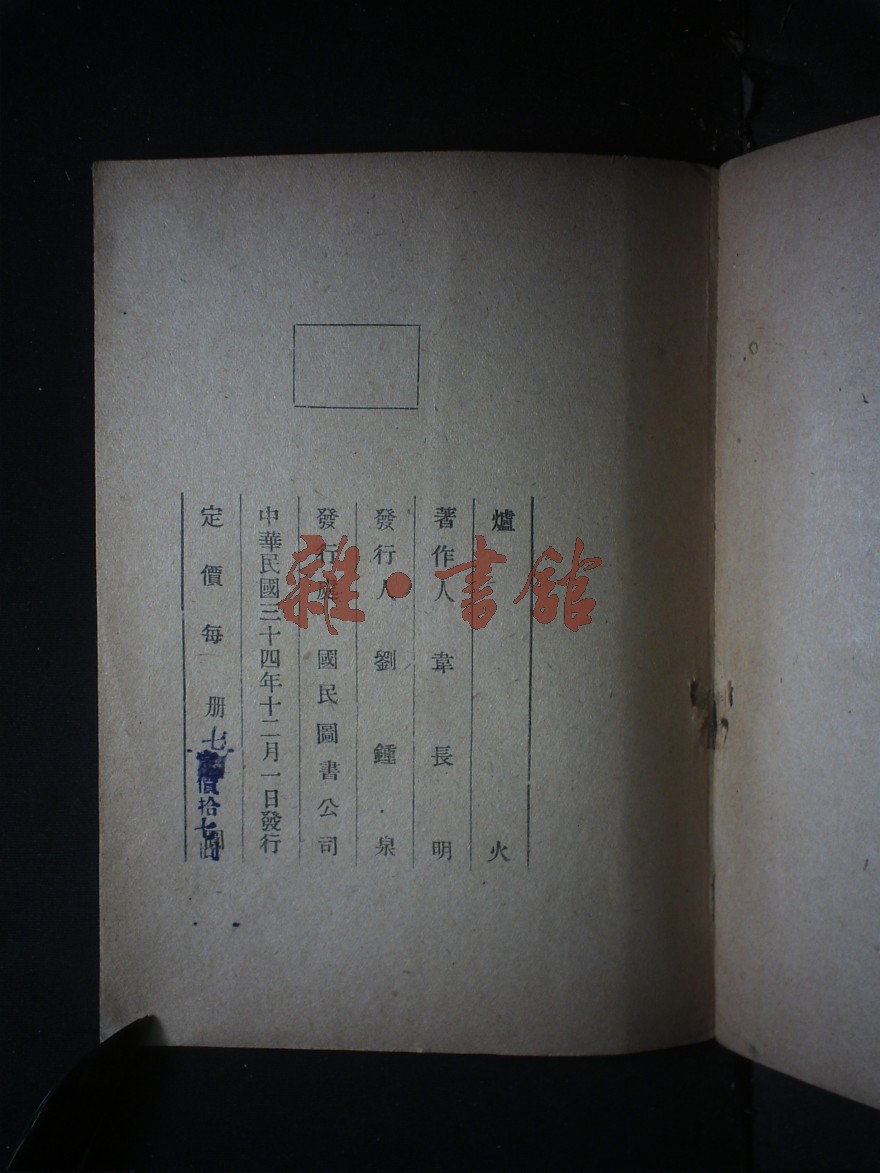 爐火
著作人 韋長明
發行人 劉鍾泉
發行處 國民圖書公司
中華民國三十四年十二月一日發行
定價每冊
七
價拾七圓
雜·書館